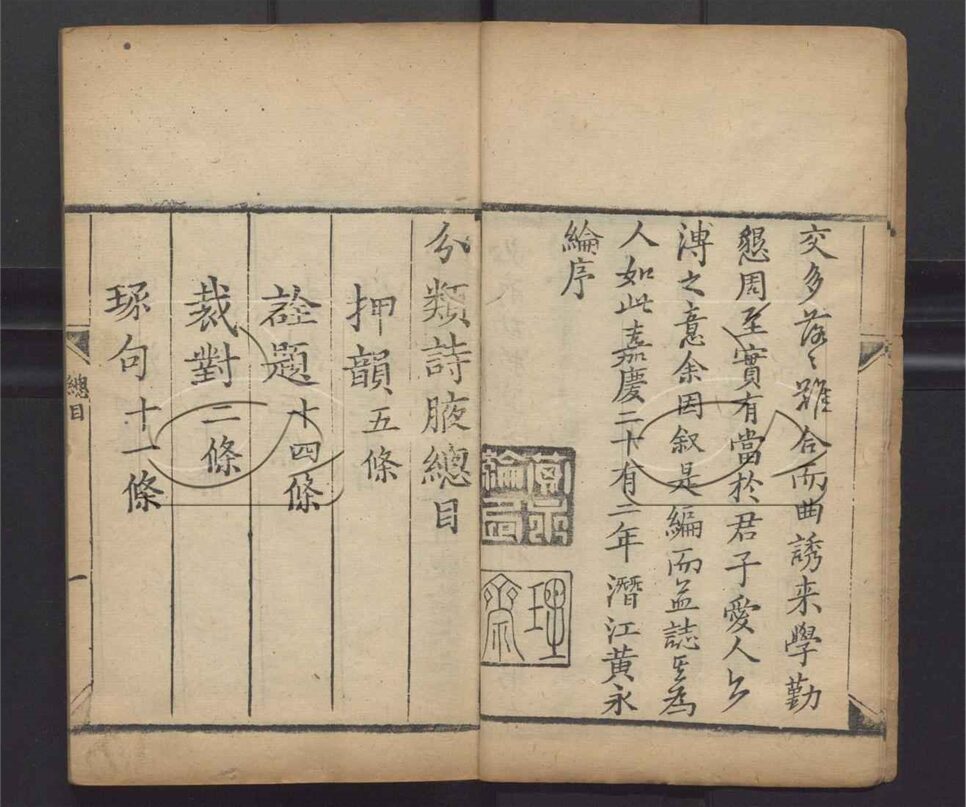 交多落〻難合而曲誘来學勤
懇周至實有當於君子愛人以
溥之意余因叙是編而益誌其為
人如此嘉慶二十有二年潛江黃永
綸序
理齋
分類詩腋總目
押韻五條
詮題十四條
裁對二條
琢句十一條
總目
一